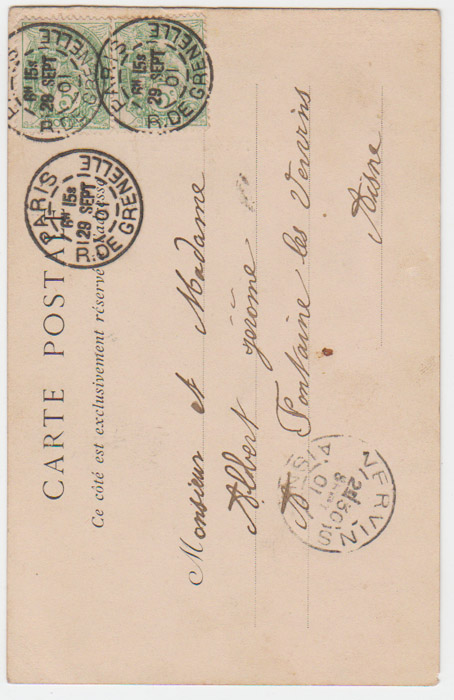 CARTE POSTALE
Ce côté est exclusivement réservé à l'adresse
Monsieur et Madame
Albert Jérome
A Fontaine les Vervins
Aisne
PARIS
15S
29 SEPT
01
R. DE GRENELLE
PARIS
15S
29 SEPT
01
R. DE GRENELLE
PARIS
15S
29 SEPT
01
R. DE GRENELLE
VERVINS
30
01
AISNE